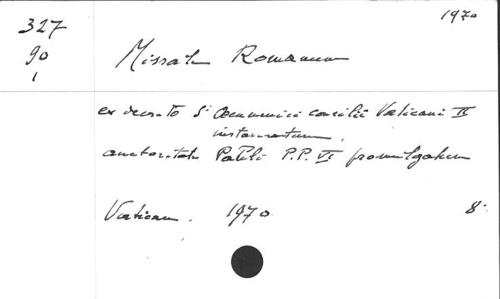 1970
327
90
1
Missale Romanum
ex decreto S. Oecumenici concilii Vaticani II
instauratum,
auctoritate Pauli P.P. VI promulgatum
Vaticanum. 1970. 8°